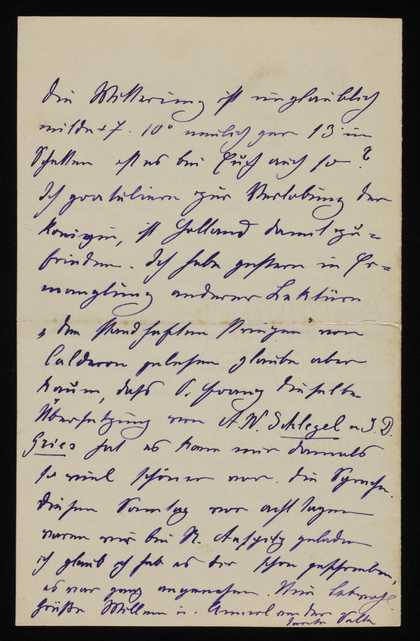 Die Witterung ist unglaublich
milde + 7 - 10° neulich gar 13 im
Schatten ist es bei Euch auch so?
Ich gratuliere zur Verlobung der
Königin, ist Holland damit zu=
frieden. Ich habe gestern in Er=
manglung anderer Lektüre
„den standhaften Prinzen" von
Calderon gelesen glaube aber
kaum, daß dieselbe
Übersetzung von A.W. Schlegel u. J.D.
Gries hat es kam mir damals
so viel schöner vor. die Sprache.
diesen Sonntag vor acht Tagen
waren wir bei R. Auspitz geladen
ich glaub ich hab es dir schon geschrieben,
es war ganz angenehm. Nun Lebewohl
Grüße Willem u. von der